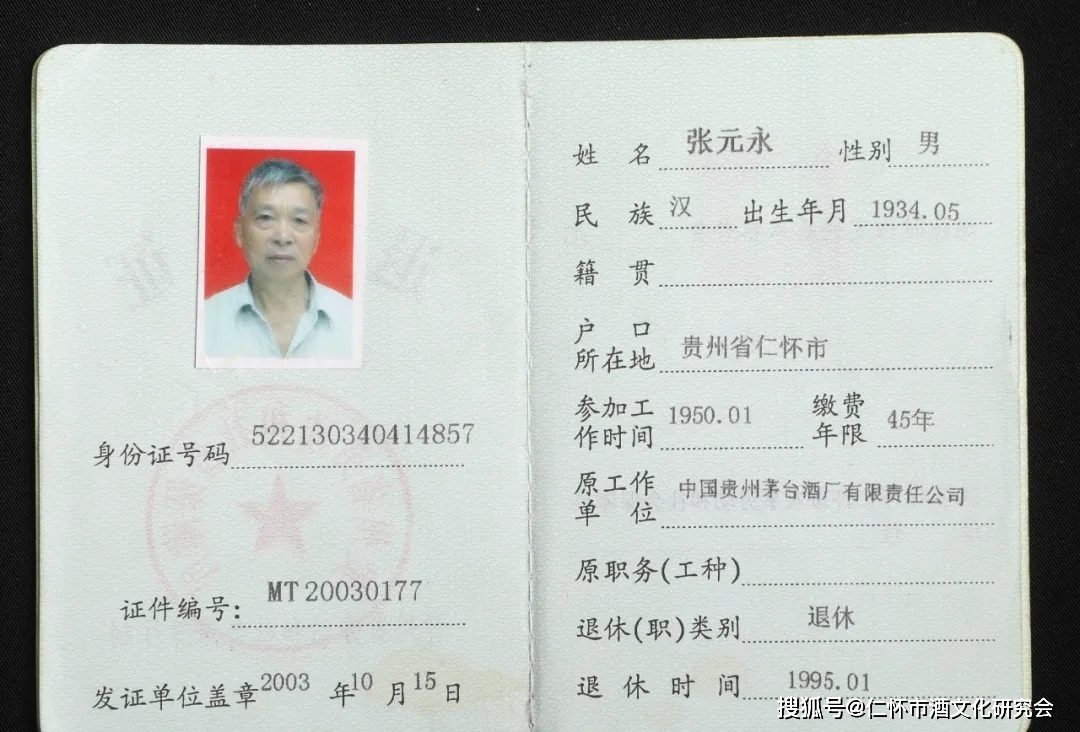 身份证号码 522130340414857
证件编号: MT20030177
发证单位盖章 2003 年 10 月 15 日
姓 名 张元永 性别 男
民 族 汉 出生年月 1934.05
籍 贯
户 口
所在地 贵州省仁怀市
参加工
作时间 1950.01 缴费
年限 45年
原工作
单 位 中国贵州茅台酒厂有限责任公司
原职务(工种)
退休(职)类别 退休
退 休 时 间 1995.01
搜狐号@仁怀市酒文化研究会